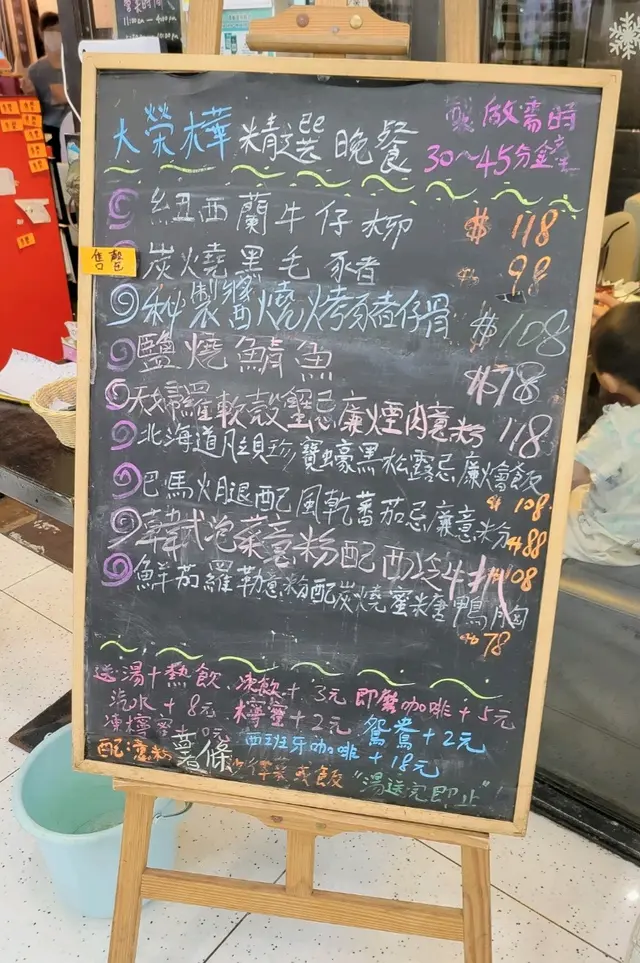 大榮華 精選晚餐
製做需時
30～45分鐘
紐西蘭牛仔柳 $118
售罄
炭燒黑毛豬 $98
秘製醬燒烤豬仔骨 $108
鹽燒鯖魚 $78
天婦羅軟殼蟹忌廉煙肉意粉 118
北海道帆立珍寶蠔黑松露忌廉燴飯 $108
巴馬火腿配風乾蕃茄忌廉意粉 $88
韓式泡菜意粉配西冷牛扒 $108
鮮茄羅勒意粉配炭燒蜜糖鴨胸
$78
送湯+熱飲、凍飲+3元 即磨咖啡+5元
汽水+8元 檸蜜+2元 鴛鴦+2元
凍檸蜜 元 西班牙咖啡+18元
配:意粉 薯條 菜或飯 "湯送完即止"